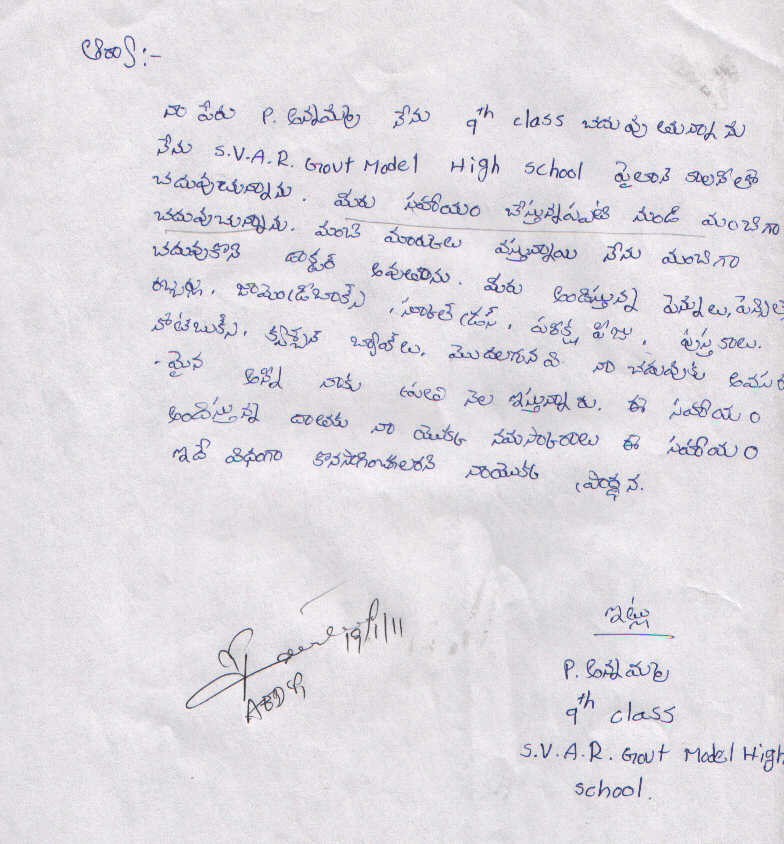 ఆర్యా:-
నా పేరు P. అన్నమ్మ నేను 9th class చదువు తున్నాను
నేను S.V.A.R. Govt Model High school పైలాన్ కాలనీలో
చదువుచున్నాను. మీరు సహాయం చేస్తున్నప్పటి నుండి మంచిగా
చదువుచున్నాను. మంచి మార్కులు వస్తున్నాయి నేను మంచిగా
చదువుకొని డాక్టర్ అవుతాను. మీరు అందిస్తున్న పెన్నులు, పెన్సిల్
రబ్బర్లు, జామెంట్రిబాక్స్, స్కూల్ డ్రస్, పరీక్ష ఫీజు, పుస్తకాలు.
నోట్‌బుక్స్, క్వశ్చన్ బ్యాంక్‌లు, మొదలగునవి నా చదువుకు అవసర
- మైన అన్నీ నాకు ప్రతి నెల ఇస్తున్నారు. ఈ సహాయం
అందిస్తున్న దాతకు నా యొక్క నమస్కారాలు ఈ సహాయం
ఇదే విధంగా కొనసాగించాలని నాయొక్క ప్రార్థన.
ఇట్లు
19/1/11
P. అన్నమ్మ
9th class
S.V.A.R. Govt Model High
school.